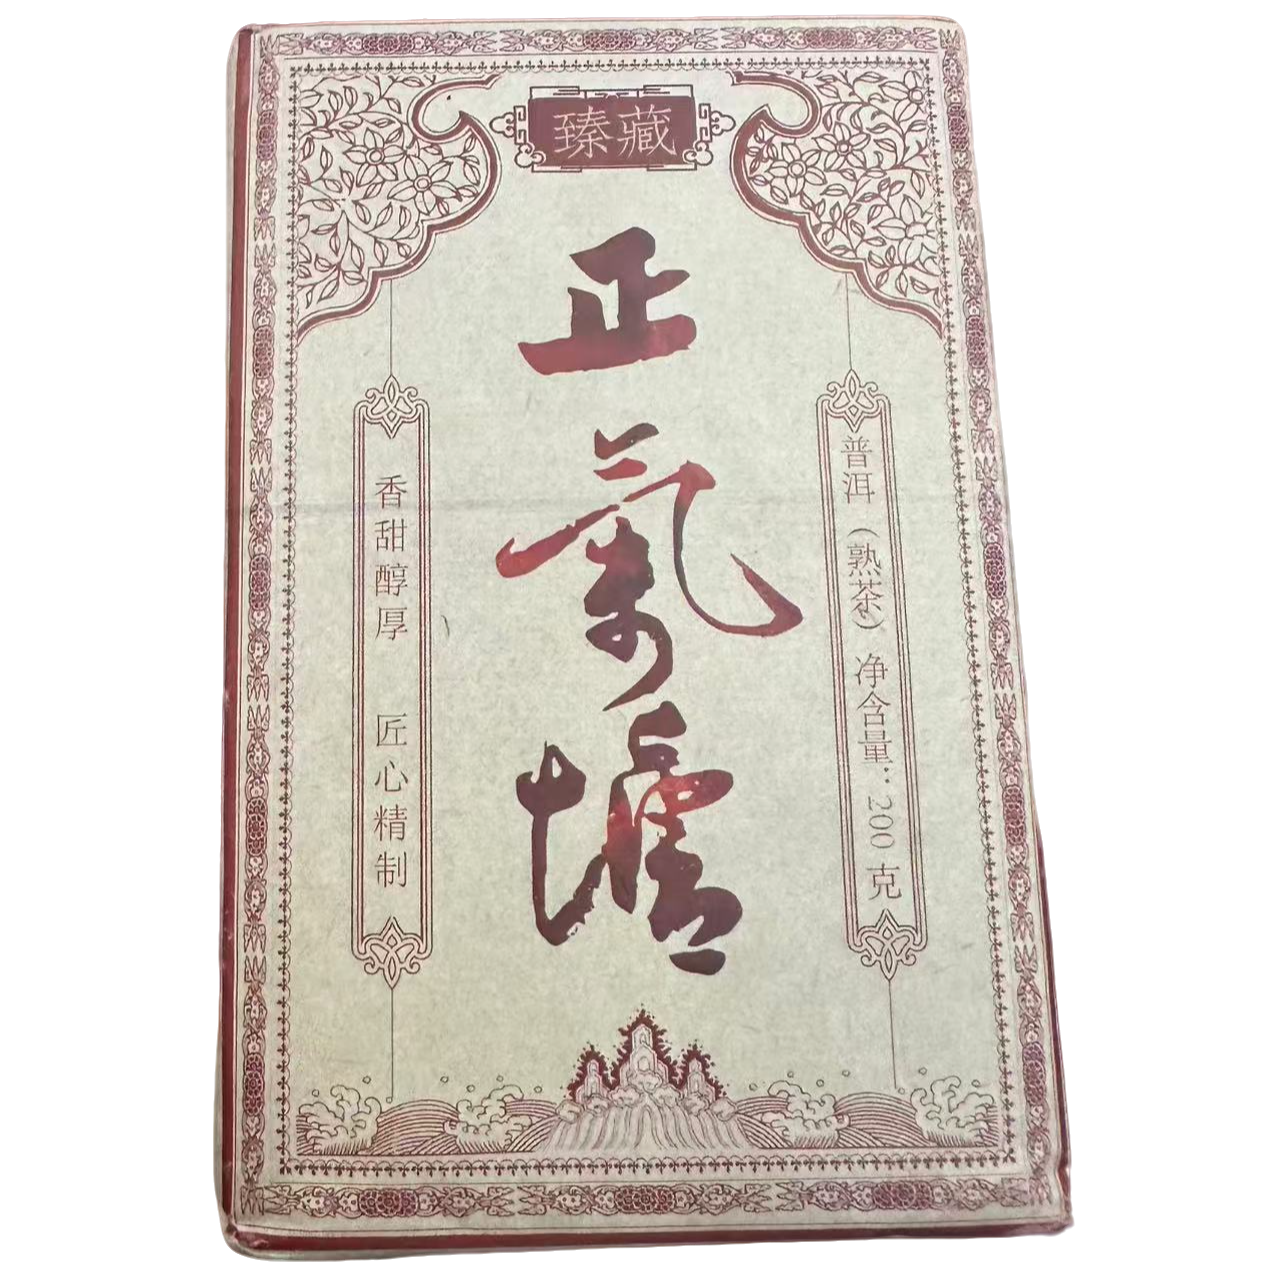 臻藏
正氣
普洱（熟茶）净含量：200克
香甜醇厚 匠心精制